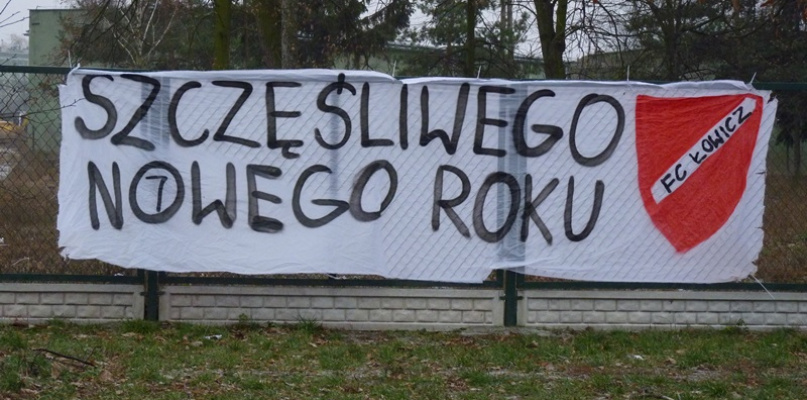 SZCZĘŚLIWEGO
NOWEGO ROKU
7
FC ŁOWICZ